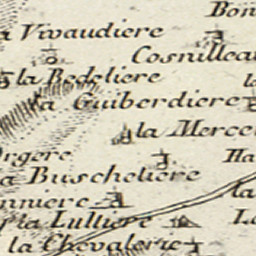 Bon
a Vivaudiere
Cosnillea
la Bedeliere
la Guiberdiere
la Merce
Orgere
Ha
a Buscheliere
la
nniere
la Lulliere
L
la Chevalerie